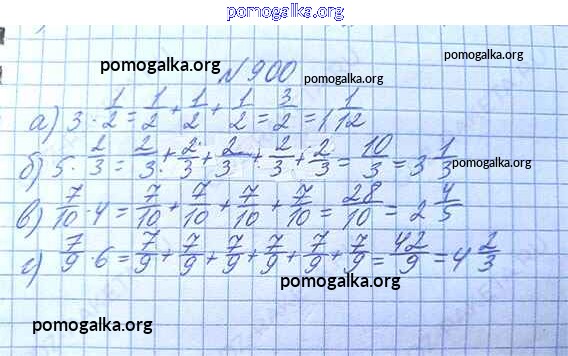 pomogalka.org
pomogalka.org № 900 pomogalka.org pomogalka.org
а) 3 · 1/2 = 1/2 + 1/2 + 1/2 = 3/2 = 1 1/12
б) 5 · 2/3 = 2/3 + 2/3 + 2/3 + 2/3 + 2/3 = 10/3 = 3 1/3 pomogalka.org
в) 7/10 · 4 = 7/10 + 7/10 + 7/10 + 7/10 = 28/10 = 2 4/5
г) 7/9 · 6 = 7/9 + 7/9 + 7/9 + 7/9 + 7/9 + 7/9 = 42/9 = 4 2/3
pomogalka.org
pomogalka.org